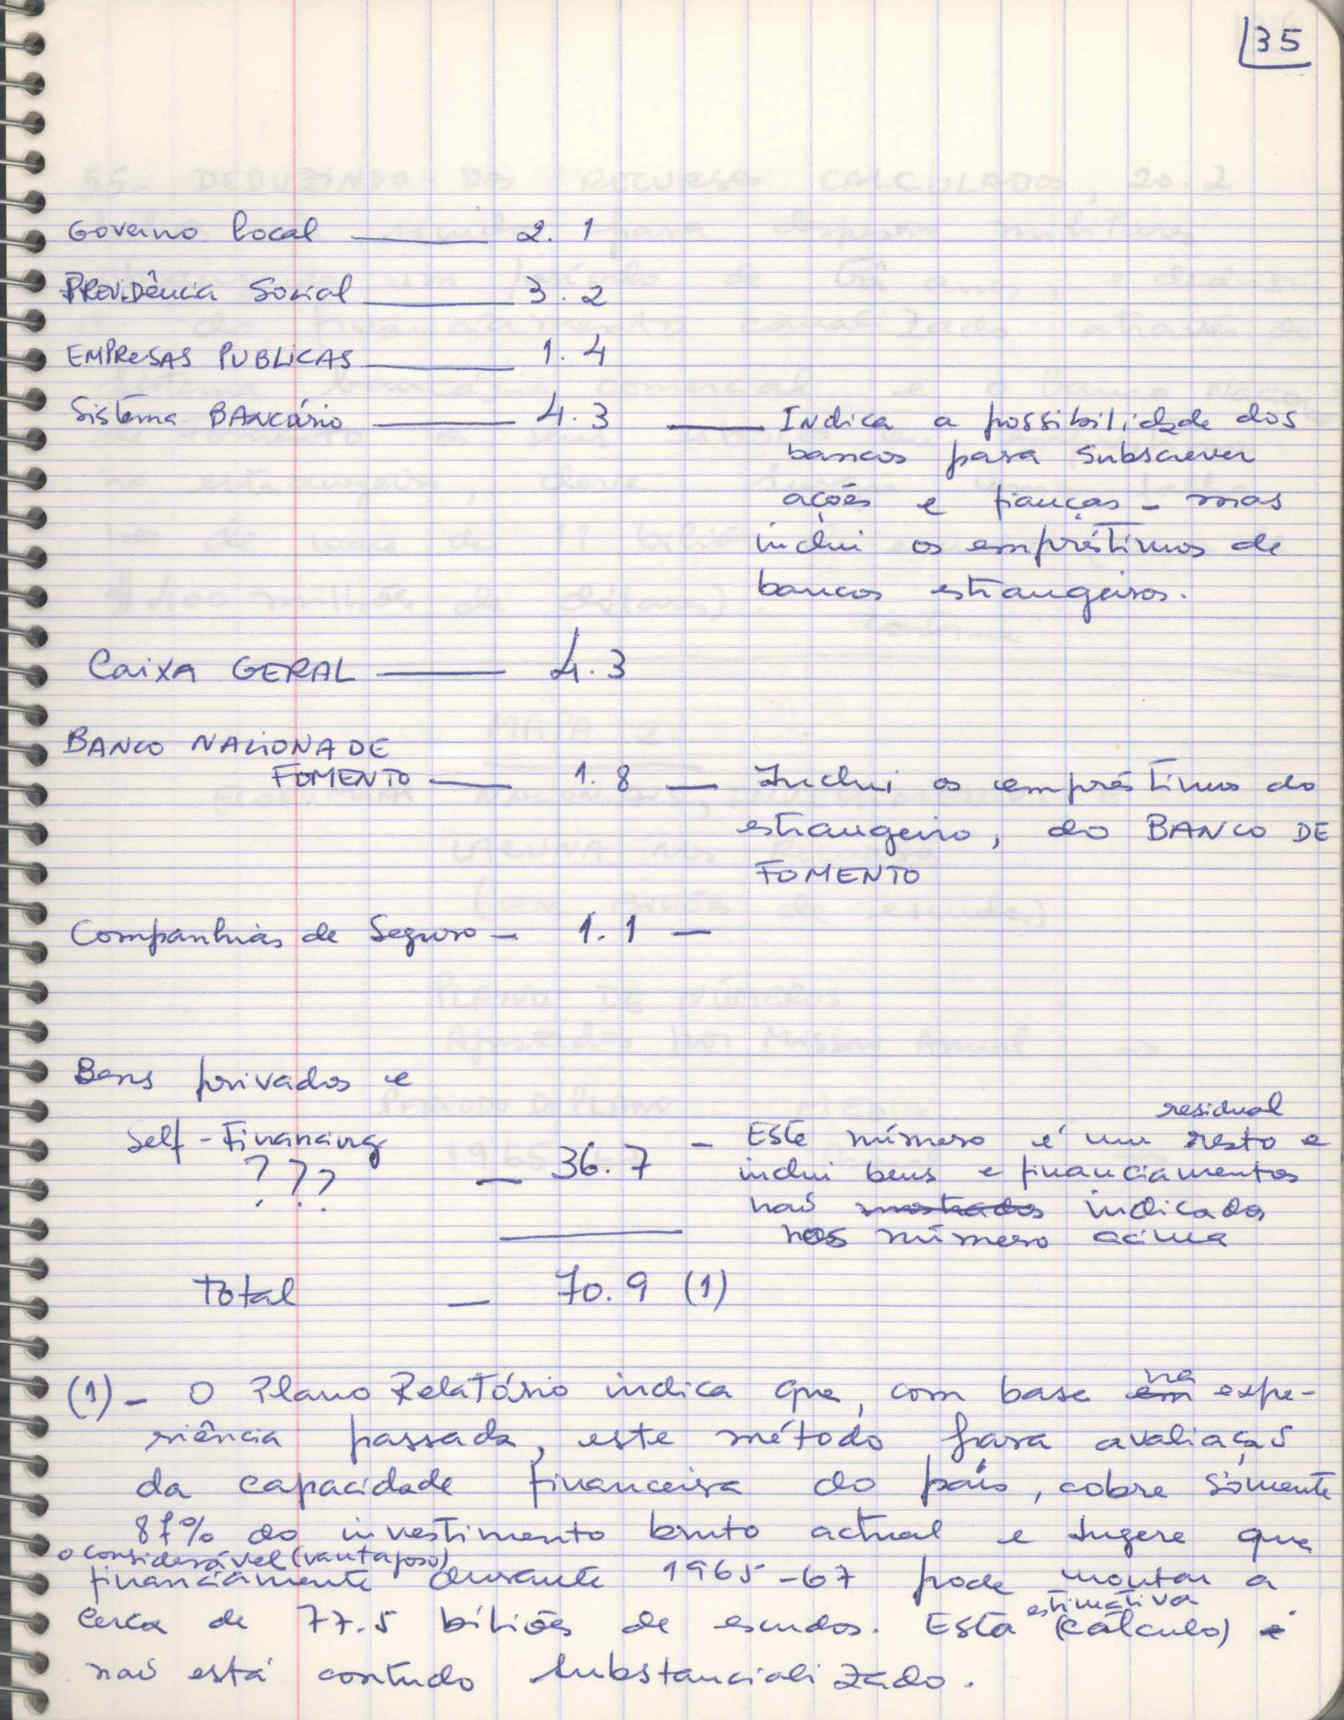 35
Governo local ——— 2.1
PREVIDência Social ——— 3.2
EMPRESAS PUBLICAS ——— 1.4
Sistema BANCário ——— 4.3 ——— Indica a possibilidade dos
bancos para subscrever
ações e fianças - mas
inclui os empréstimos de
bancos estrangeiros.
Caixa GERAL ——— 4.3
BANCO NACIONA DE
FOMENTO ——— 1.8 — Inclui os empréstimos do
estrangeiro, do BANCO DE
FOMENTO
Companhias de Seguro — 1.1 —
Bens privados e
residual
Self-Financing — 36.7 - Este número é um resto e
??? inclui bens e financiamentos
não mostrados indicados
nos número acima
Total — 70.9 (1)
(1) - O Plano Relatório indica que, com base em na expe-
riência passada, este método para avaliação
da capacidade financeira do país, cobre sòmente
87% do investimento bruto actual e sugere que
o considerável (vantajoso)
financiamente durante 1965-67 pode montar a
estimativa
cerca de 77.5 biliões de escudos. Esta (cálculo) é
não está contudo substancializado.